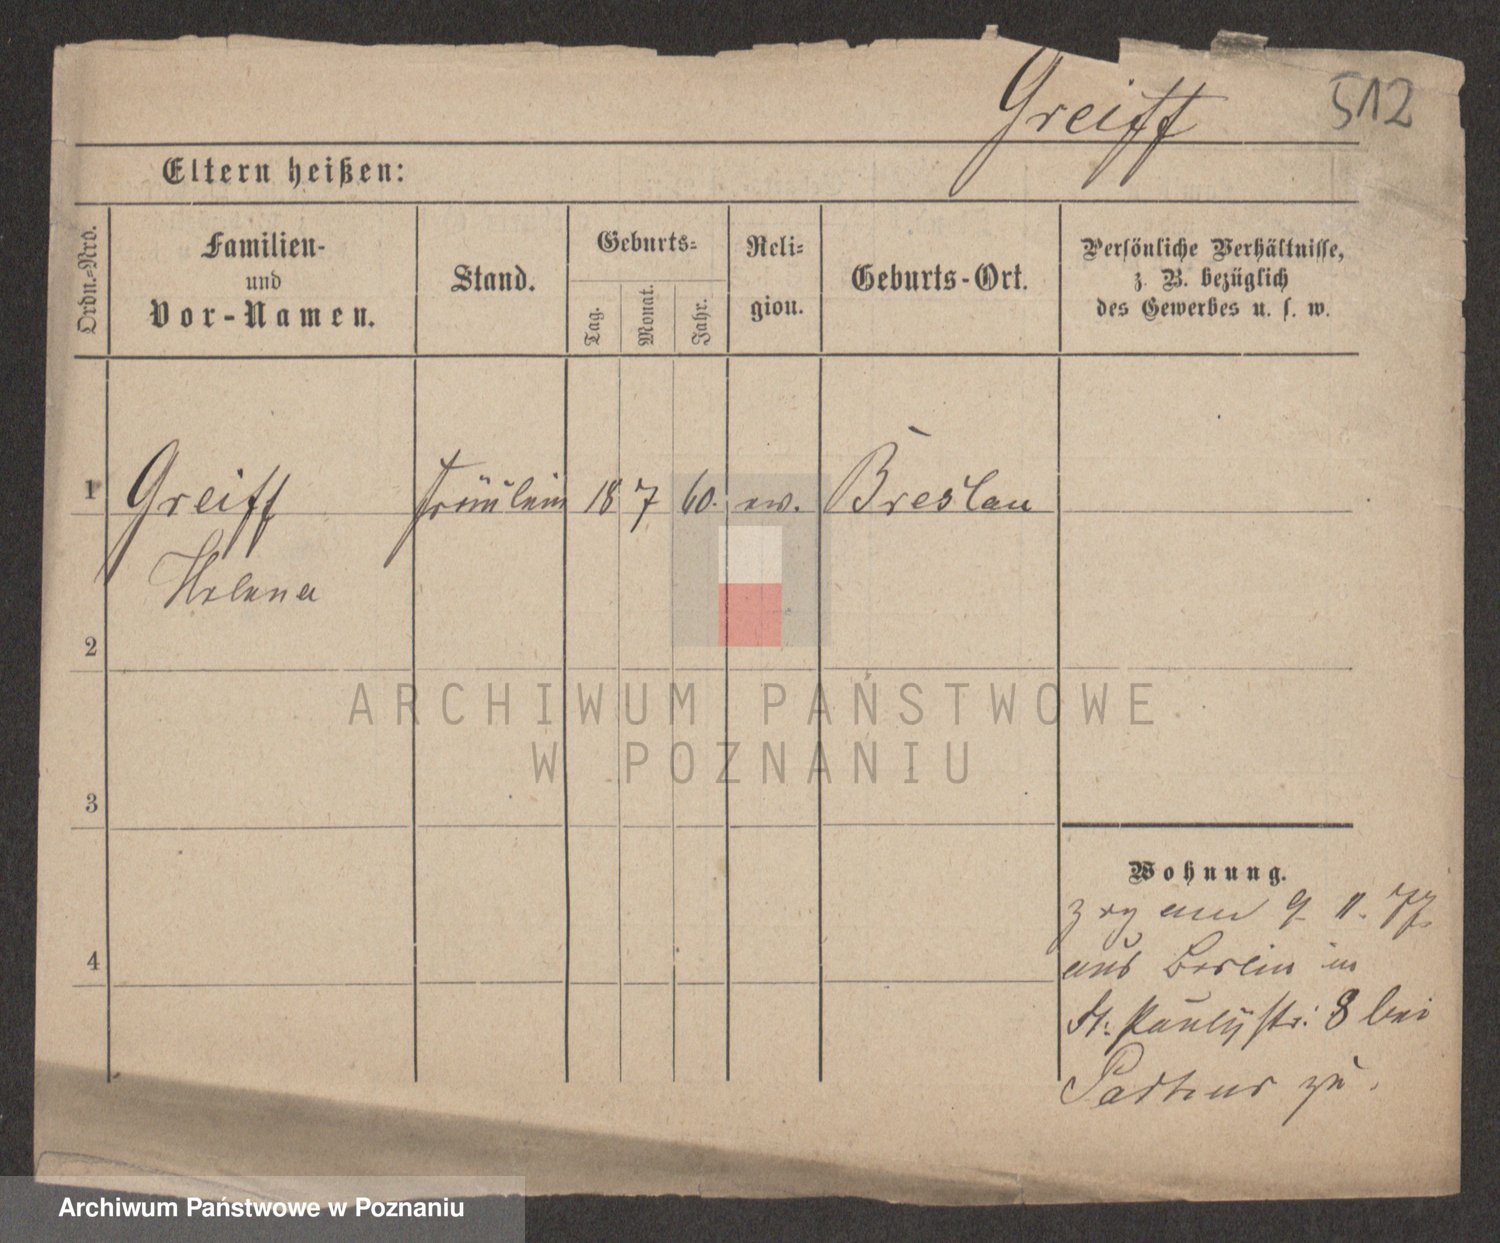 Greiff 512
Eltern heißen:
Ordn.-Nro.
Familien-
und
Vor-Namen.
Stand.
Geburts-
Tag.
Monat.
Jahr.
Reli-
gion.
Geburts-Ort.
Persönliche Verhältnisse,
z. B. bezüglich
des Gewerbes u. s. w.
1 Greiff Fräulein 18 7 60. ev. Breslau
Helena
2
3
4
Wohnung.
am 9 11. 77
aus Berlin in
St. Paulystr: 8 bei
zu.
ARCHIWUM PAŃSTWOWE
W POZNANIU
Archiwum Państwowe w Poznaniu